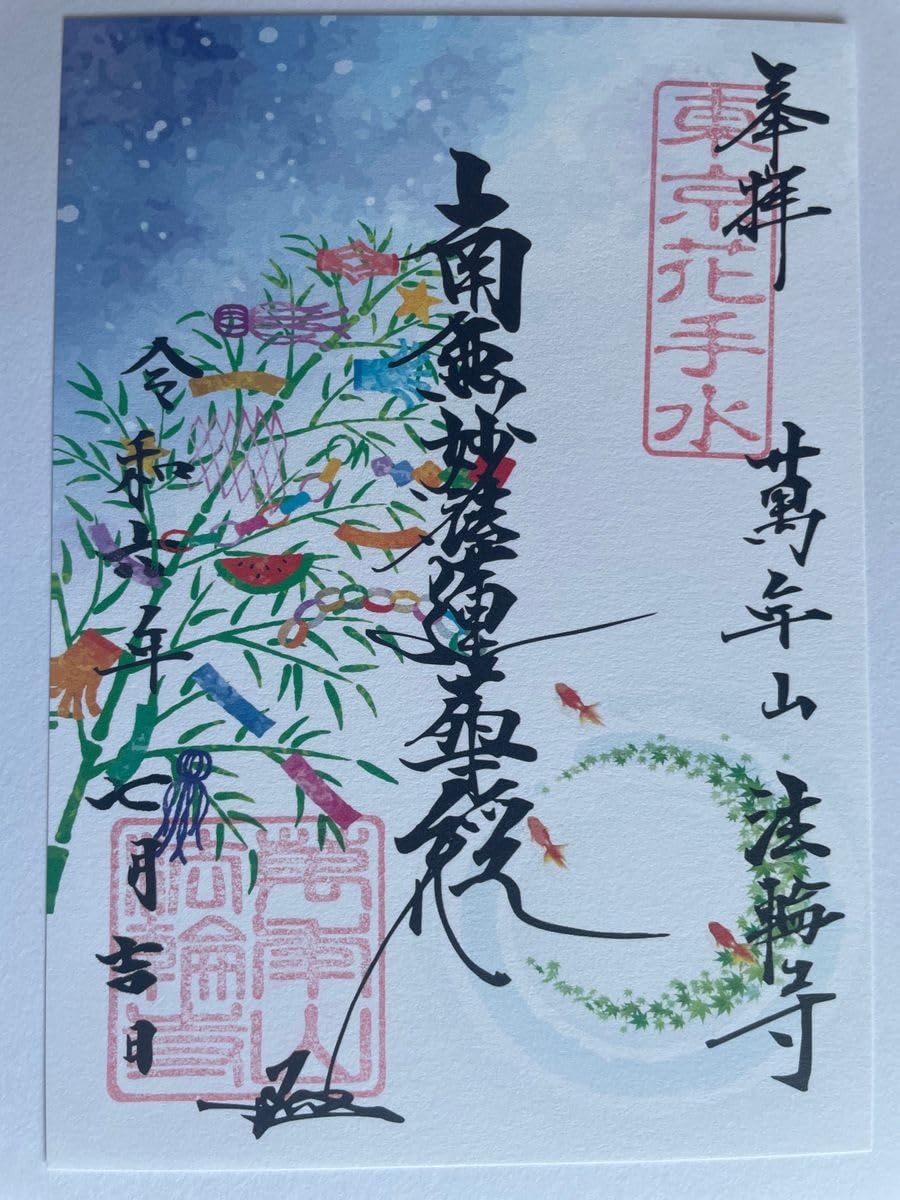 奉拝
東京花手水
萬年山 法輪寺
南無妙法蓮華経
令和六年七月吉日
萬年山
法輪寺